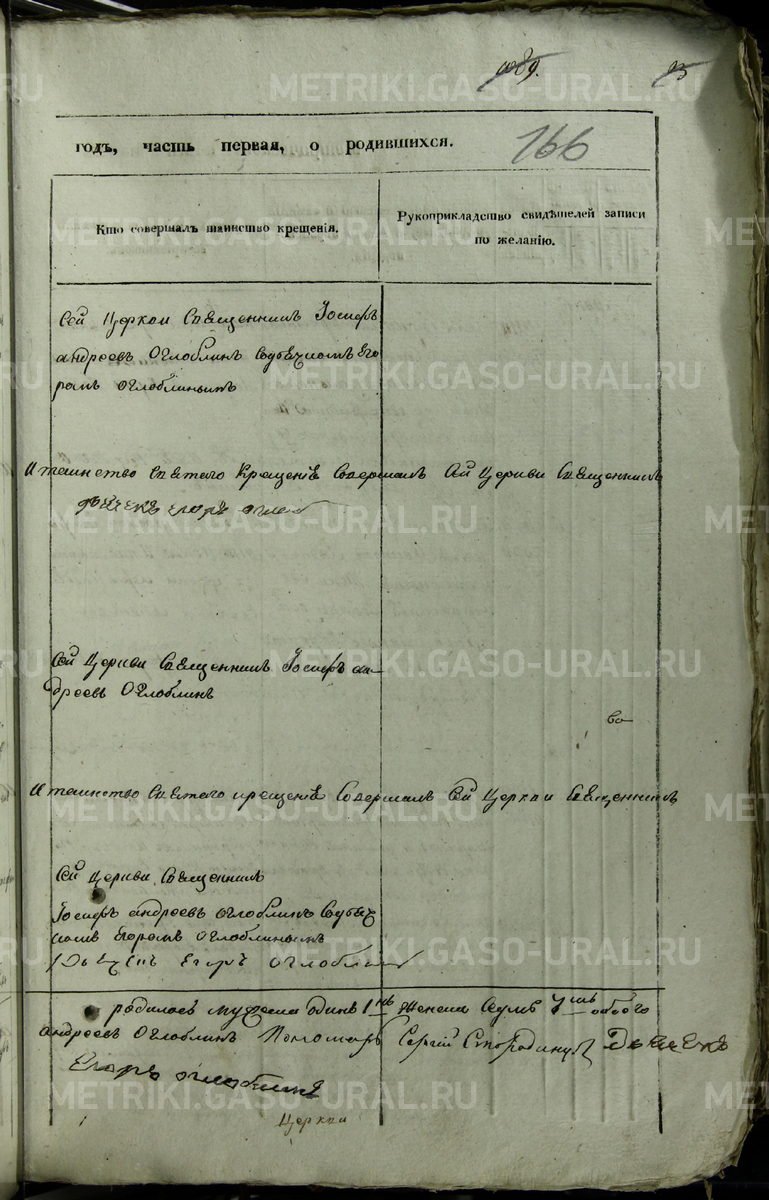 1089.
166
годъ, часть первая, о родившихся.
Кто совершалъ таинство крещенія.
Рукоприкладство свидѣтелей записи
по желанію.
Сей Церкви Священникъ Іосифъ
андреевъ Оглоблинъ Содьячкомъ Его
ромъ Оглоблинымъ
И таинство Святаго Крещенія Совершалъ Сей Церкви Священникъ
дьячекъ егоръ оглоб
Сей Церкви Священникъ Іосифъ ан
дреевъ Оглоблинъ
во
И таинство Святаго крещенія Совершалъ Сей Церкви Священникъ
Сей Церкви Священникъ
Іосифъ андреевъ Оглоблинъ Содьяч
комъ Егоромъ Оглоблинымъ
Дьячекъ Егоръ Оглоблин
родилось мужеска одинъ 1 женска Седмь 7 обоего
андреевъ Оглоблинъ Пономарь Сергій Дьячекъ
Егоръ оглоблинъ
Церкви
METRIKI.GASO-URAL.RU